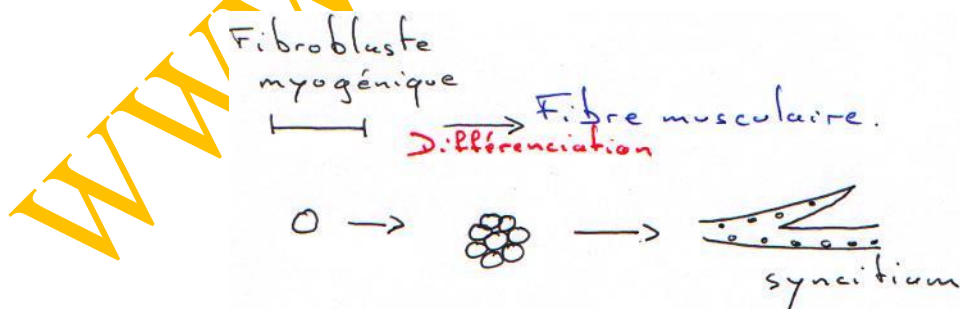 Fibroblaste
myogénique
Fibre musculaire.
Différenciation
syncitium
WWW